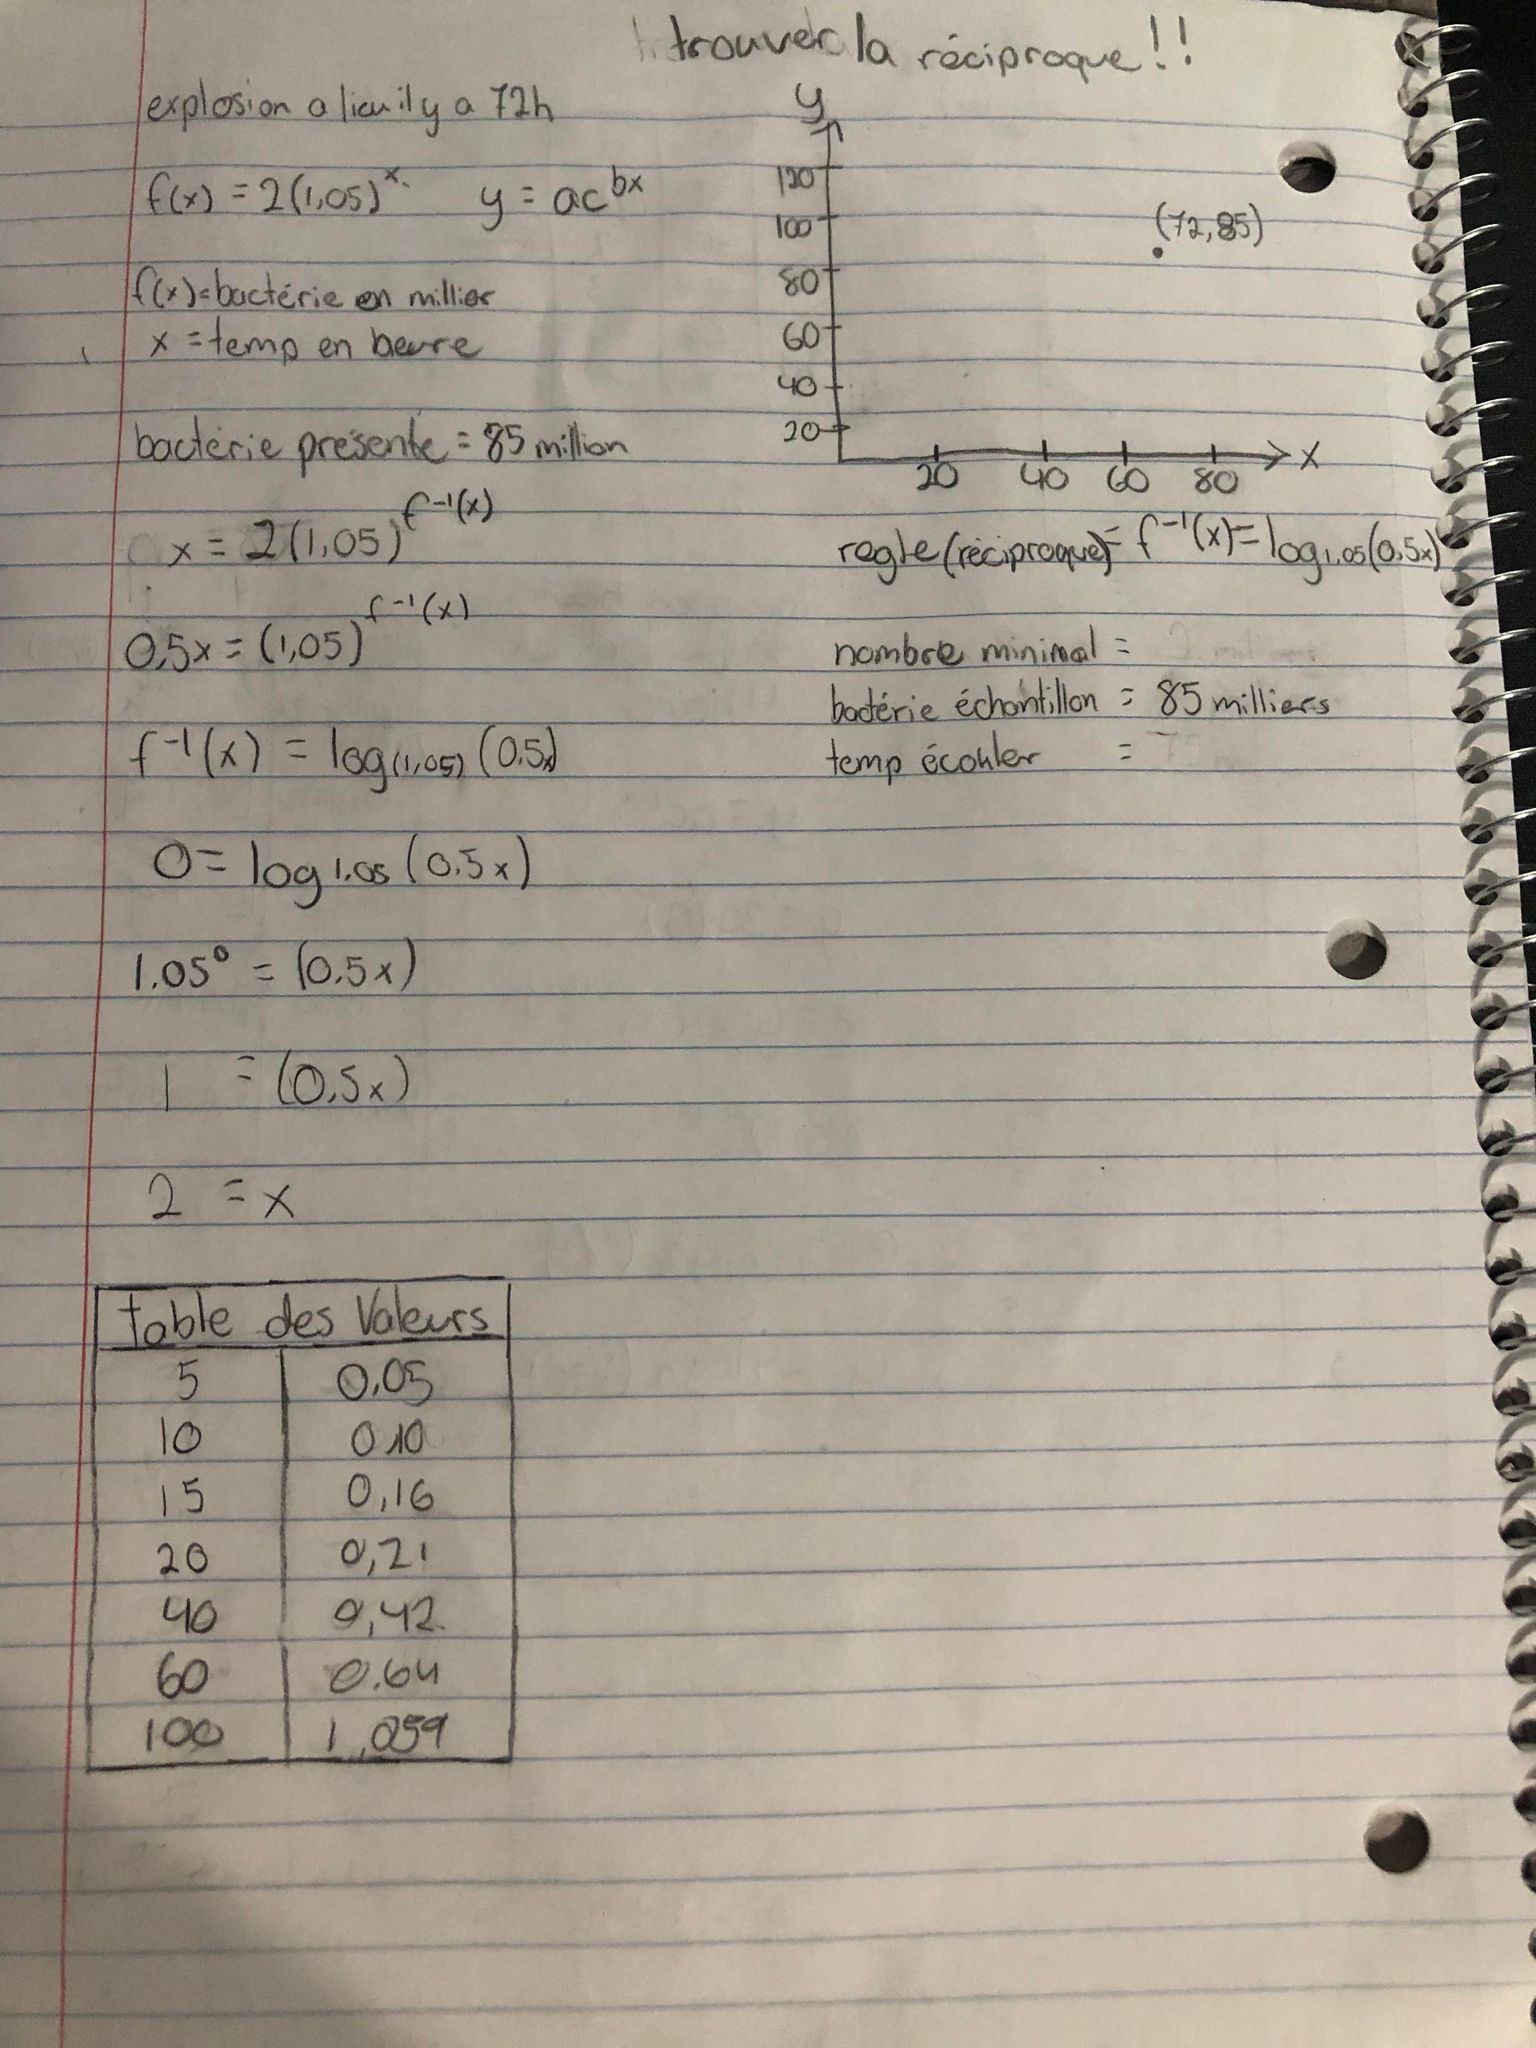 trouver la réciproque!!
explosion a lieu il y a 72h
f(x) = 2(1,05)^x y = ac^bx
f(x)=bactérie en millier
x = temp en heure
bactérie présente = 85 million
x = 2(1,05)^f⁻¹(x)
0,5x = (1,05)^f⁻¹(x)
f⁻¹(x) = log(1,05) (0,5x)
0 = log1.05 (0.5x)
1.05⁰ = (0.5x)
1 = (0.5x)
2 = x
table des Valeurs
5 0,05
10 0,10
15 0,16
20 0,21
40 0,42
60 0.64
100 1,059
y
120
100
80
60
40
20
(72,85)
20 40 60 80 x
regle(réciproque)= f⁻¹(x)=log1.05(0,5x)
nombre minimal =
bactérie échantillon = 85 milliers
temp écouler =